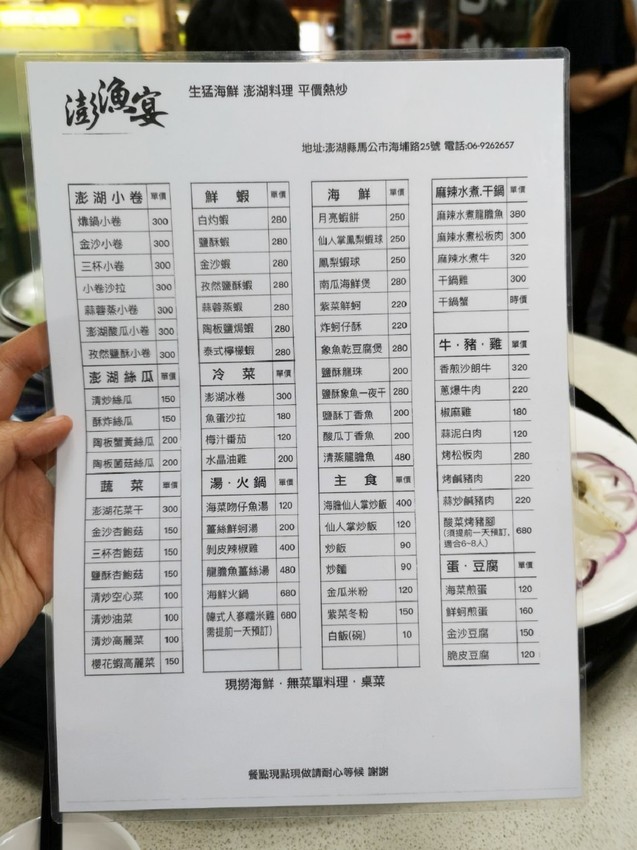 澎漁宴
生猛海鮮 澎湖料理 平價熱炒
地址:澎湖縣馬公市海埔路25號 電話:06-9262657
澎湖小卷 單價
燒鍋小卷 300
金沙小卷 300
三杯小卷 300
小卷沙拉 300
蒜蓉蒸小卷 300
澎湖酸瓜小卷 300
孜然鹽酥小卷 300
澎湖絲瓜 單價
清炒絲瓜 150
酥炸絲瓜 150
陶板蟹黃絲瓜 200
陶板菌菇絲瓜 200
蔬菜 單價
澎湖花菜干 300
金沙杏鮑菇 150
三杯杏鮑菇 150
鹽酥杏鮑菇 150
清炒空心菜 100
清炒油菜 100
清炒高麗菜 100
櫻花蝦高麗菜 150
鮮蝦 單價
白灼蝦 280
鹽酥蝦 280
金沙蝦 280
孜然鹽酥蝦 280
蒜蓉蒸蝦 280
陶板鹽焗蝦 280
泰式檸檬蝦 280
冷菜 單價
澎湖冰卷 300
魚蛋沙拉 180
梅汁番茄 120
水晶油雞 200
湯·火鍋 單價
海菜吻仔魚湯 120
薑絲鮮蚵湯 200
剝皮辣椒雞 400
龍膽魚薑絲湯 480
海鮮火鍋 680
韓式人蔘糯米雞 680
需提前一天預訂)
海鮮 單價
月亮蝦餅 250
仙人掌鳳梨蝦球 250
鳳梨蝦球 250
南瓜海鮮煲 280
紫菜鮮蚵 220
炸蚵仔酥 220
象魚乾豆腐煲 280
鹽酥龍珠 200
鹽酥象魚一夜干 280
鹽酥丁香魚 200
酸瓜丁香魚 200
清蒸龍膽魚 480
主食 單價
海膽仙人掌炒飯 400
仙人掌炒飯 120
炒飯 90
炒麵 90
金瓜米粉 120
紫菜冬粉 150
白飯(碗) 10
麻辣水煮.干鍋 單價
麻辣水煮龍膽魚 380
麻辣水煮松板肉 300
麻辣水煮牛 320
干鍋雞 300
干鍋蟹 時價
牛·豬·雞 單價
香煎沙朗牛 320
蔥爆牛肉 220
椒麻雞 180
蒜泥白肉 120
烤松板肉 280
烤鹹豬肉 220
蒜炒鹹豬肉 220
酸菜烤豬腳 680
(須提前一天預訂,
適合6-8人)
蛋·豆腐 單價
海菜煎蛋 120
鮮蚵煎蛋 160
金沙豆腐 150
脆皮豆腐 120
現撈海鮮·無菜單料理·桌菜
餐點現點現做請耐心等候 謝謝